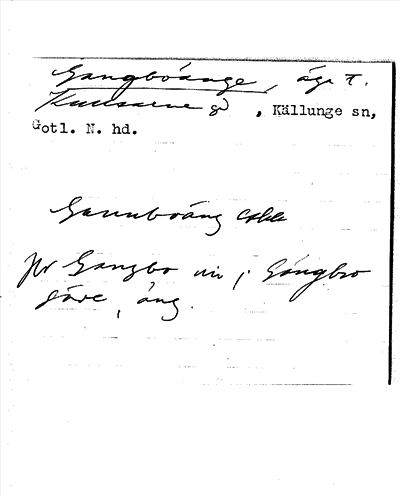 Gangboänge, äga t.
Kunsarve gd, Källunge sn,
Gotl. N. hd.
Gannboäng
jfr Gangbo in i Gångbo
gäre, äng.